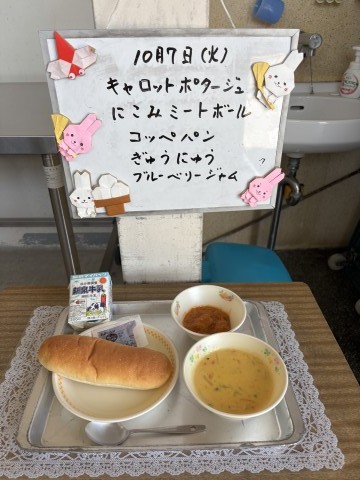 10月7日(火)
キャロットポタージュ
にこみミートボール
コッペパン
ぎゅうにゅう
ブルーベリージャム
牛乳